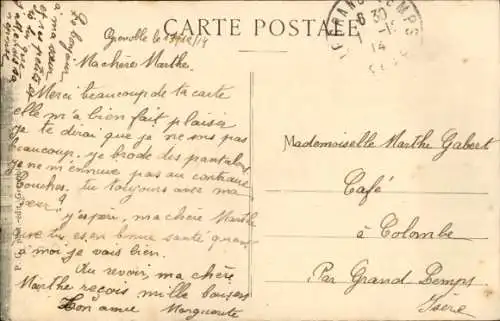 CARTE POSTALE
Grenoble le 13/12/14
Ma chère Marthe.
Merci beaucoup de ta carte
elle m'a bien fait plaisir
je te dirai que je ne sors pas
beaucoup, je brode des pantalons
je ne m'ennuie pas au contraire
Couches. tu toujours avec ma
sœur?
j'espère, ma chère Marthe
que tu es en bonne santé quant
à moi je vais bien.
Au revoir, ma chère
Marthe reçois mille baisers
Ton amie Marguerite
Mademoiselle Marthe Gabert
Café
à Colombe
Par Grand Lemps
Isère
Le bonjour
à ma sœur